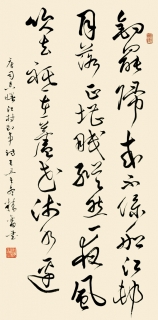 釣罷歸来不係船江村
月落正堪眠縱然一夜風
吹去祗在蘆花浅水邊
唐司空曙江村即事